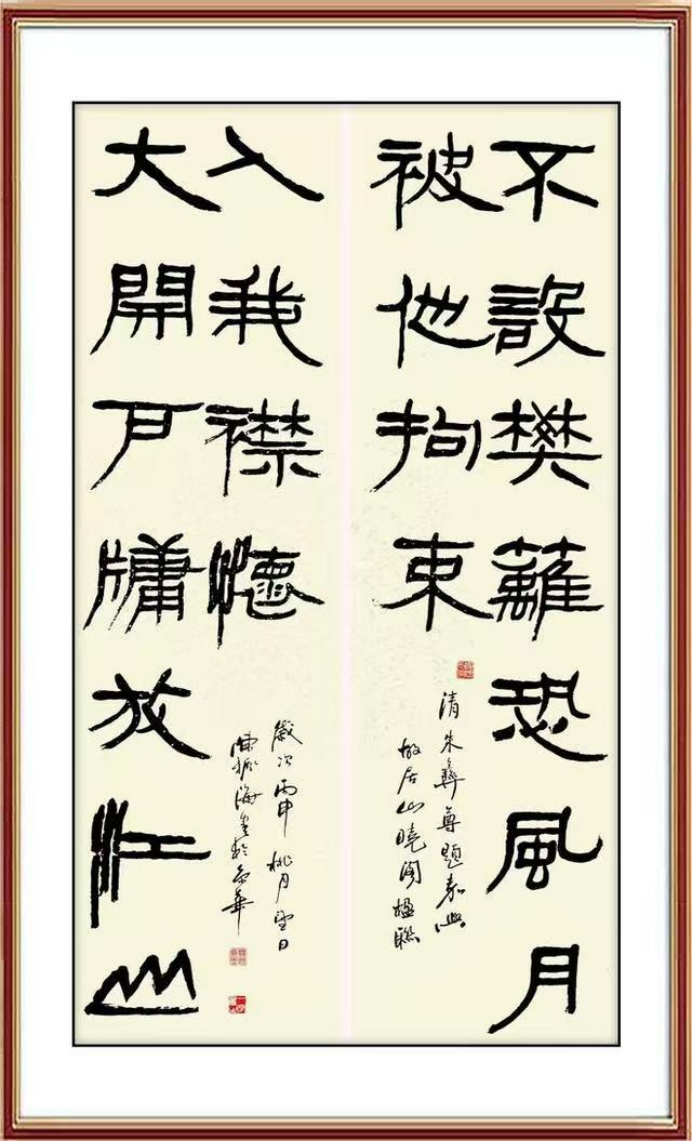 不設樊籬恐風月
被他拘束
清朱彝尊題嘉興
故居山曉閣楹聯
大開戶牖放江山
入我襟懷
歲次丙申桃月望日
陳振海書於京華